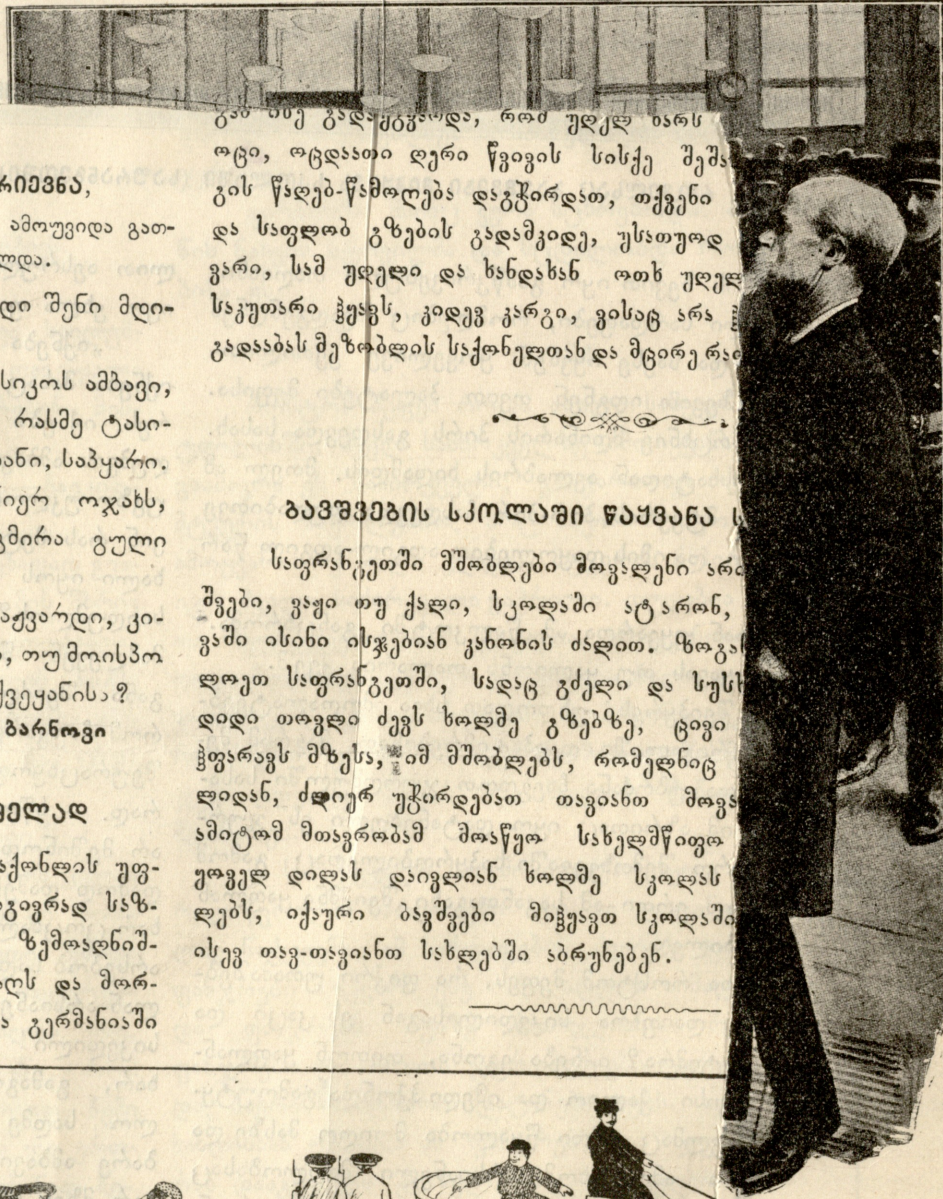 რიევნა,
ამოუვიდა გათ-
ლდა.
დი შენი მდი-
სიკოს ამბავი,
რასმე ტასი-
ანი, საპყარი.
იერ ოჯახს,
გმირა გული
აჟვარდი, კი-
, თუ მოისპო
ქვეყანისა?
ბარნოვი
ველად
აქონლის უფ-
გივრად საზ-
ზემოაღნიშ-
და მორ-
ა გერმანიაში
რომ უღელ ხარს
ოცი, ოცდაათი ღერი წვივის სისქე შეშა
გის წაღებ-წამოღება დაგჭირდათ, თქვენი
და საფლობ გზების გადამკიდე, უსათუოდ
ვარი, სამ უღელი და ხანდახან ოთხ უღელ
საკუთარი ჰყავს, კიდევ კარგი, ვისაც არა
გადააბას მეზობლის საქონელთან და მცირე რაი
ბავშვების სკოლაში წაყვანა ს
საფრანგეთში მშობლები მოვალენი არი
შვები, ვაჟი თუ ქალი, სკოლაში ატარონ,
ვაში ისინი ისჯებიან კანონის ძალით. ზოგა
ლოეთ საფრანგეთში, სადაც გძელი და სუსხ
დიდი თოვლი ძევს ხოლმე გზებზე, ცივი
ჰფარავს მზესა, იმ მშობლებს, რომელნიც
ლიდან, ძლიერ უჭირდებათ თავიანთ მოვა
ამიტომ მთავრობამ მოაწყო სახელმწიფო
ყოველ დილას დაივლიან ხოლმე სკოლას
ლებს, იქაური ბავშვები მიჰყავთ სკოლაში
ისევ თავ-თავიანთ სახლებში აბრუნებენ.